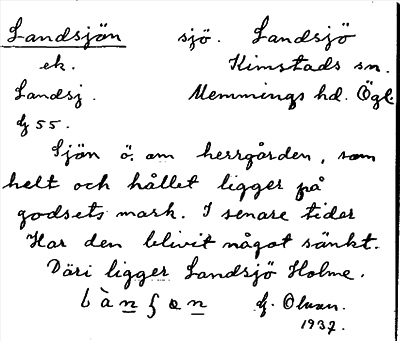 Landsjön sjö. Landsjö
ek. Kimstads sn.
Landsj. Memmings hd. Ögl.
Gf 55.
Sjön ö. om herrgården, som
helt och hållet ligger på
godsets mark. I senare tider
Har den blivit något sänkt.
Däri ligger Landsjö Holme.
G. Olsson.
1937.